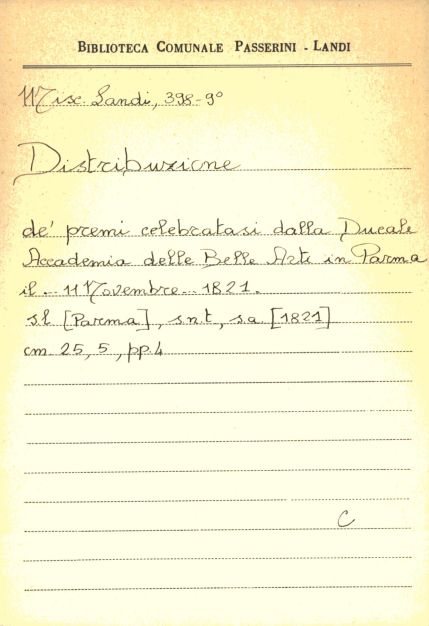 BIBLIOTECA COMUNALE PASSERINI - LANDI
Misc. Landi, 398-9°
Distribuzione
de' premi celebratasi dalla Ducale
Accademia delle Belle Arti in Parma
il... Novembre... 1821.
s.l [Parma], s.n.t, s.a [1821]
cm 25,5, pp.4
C